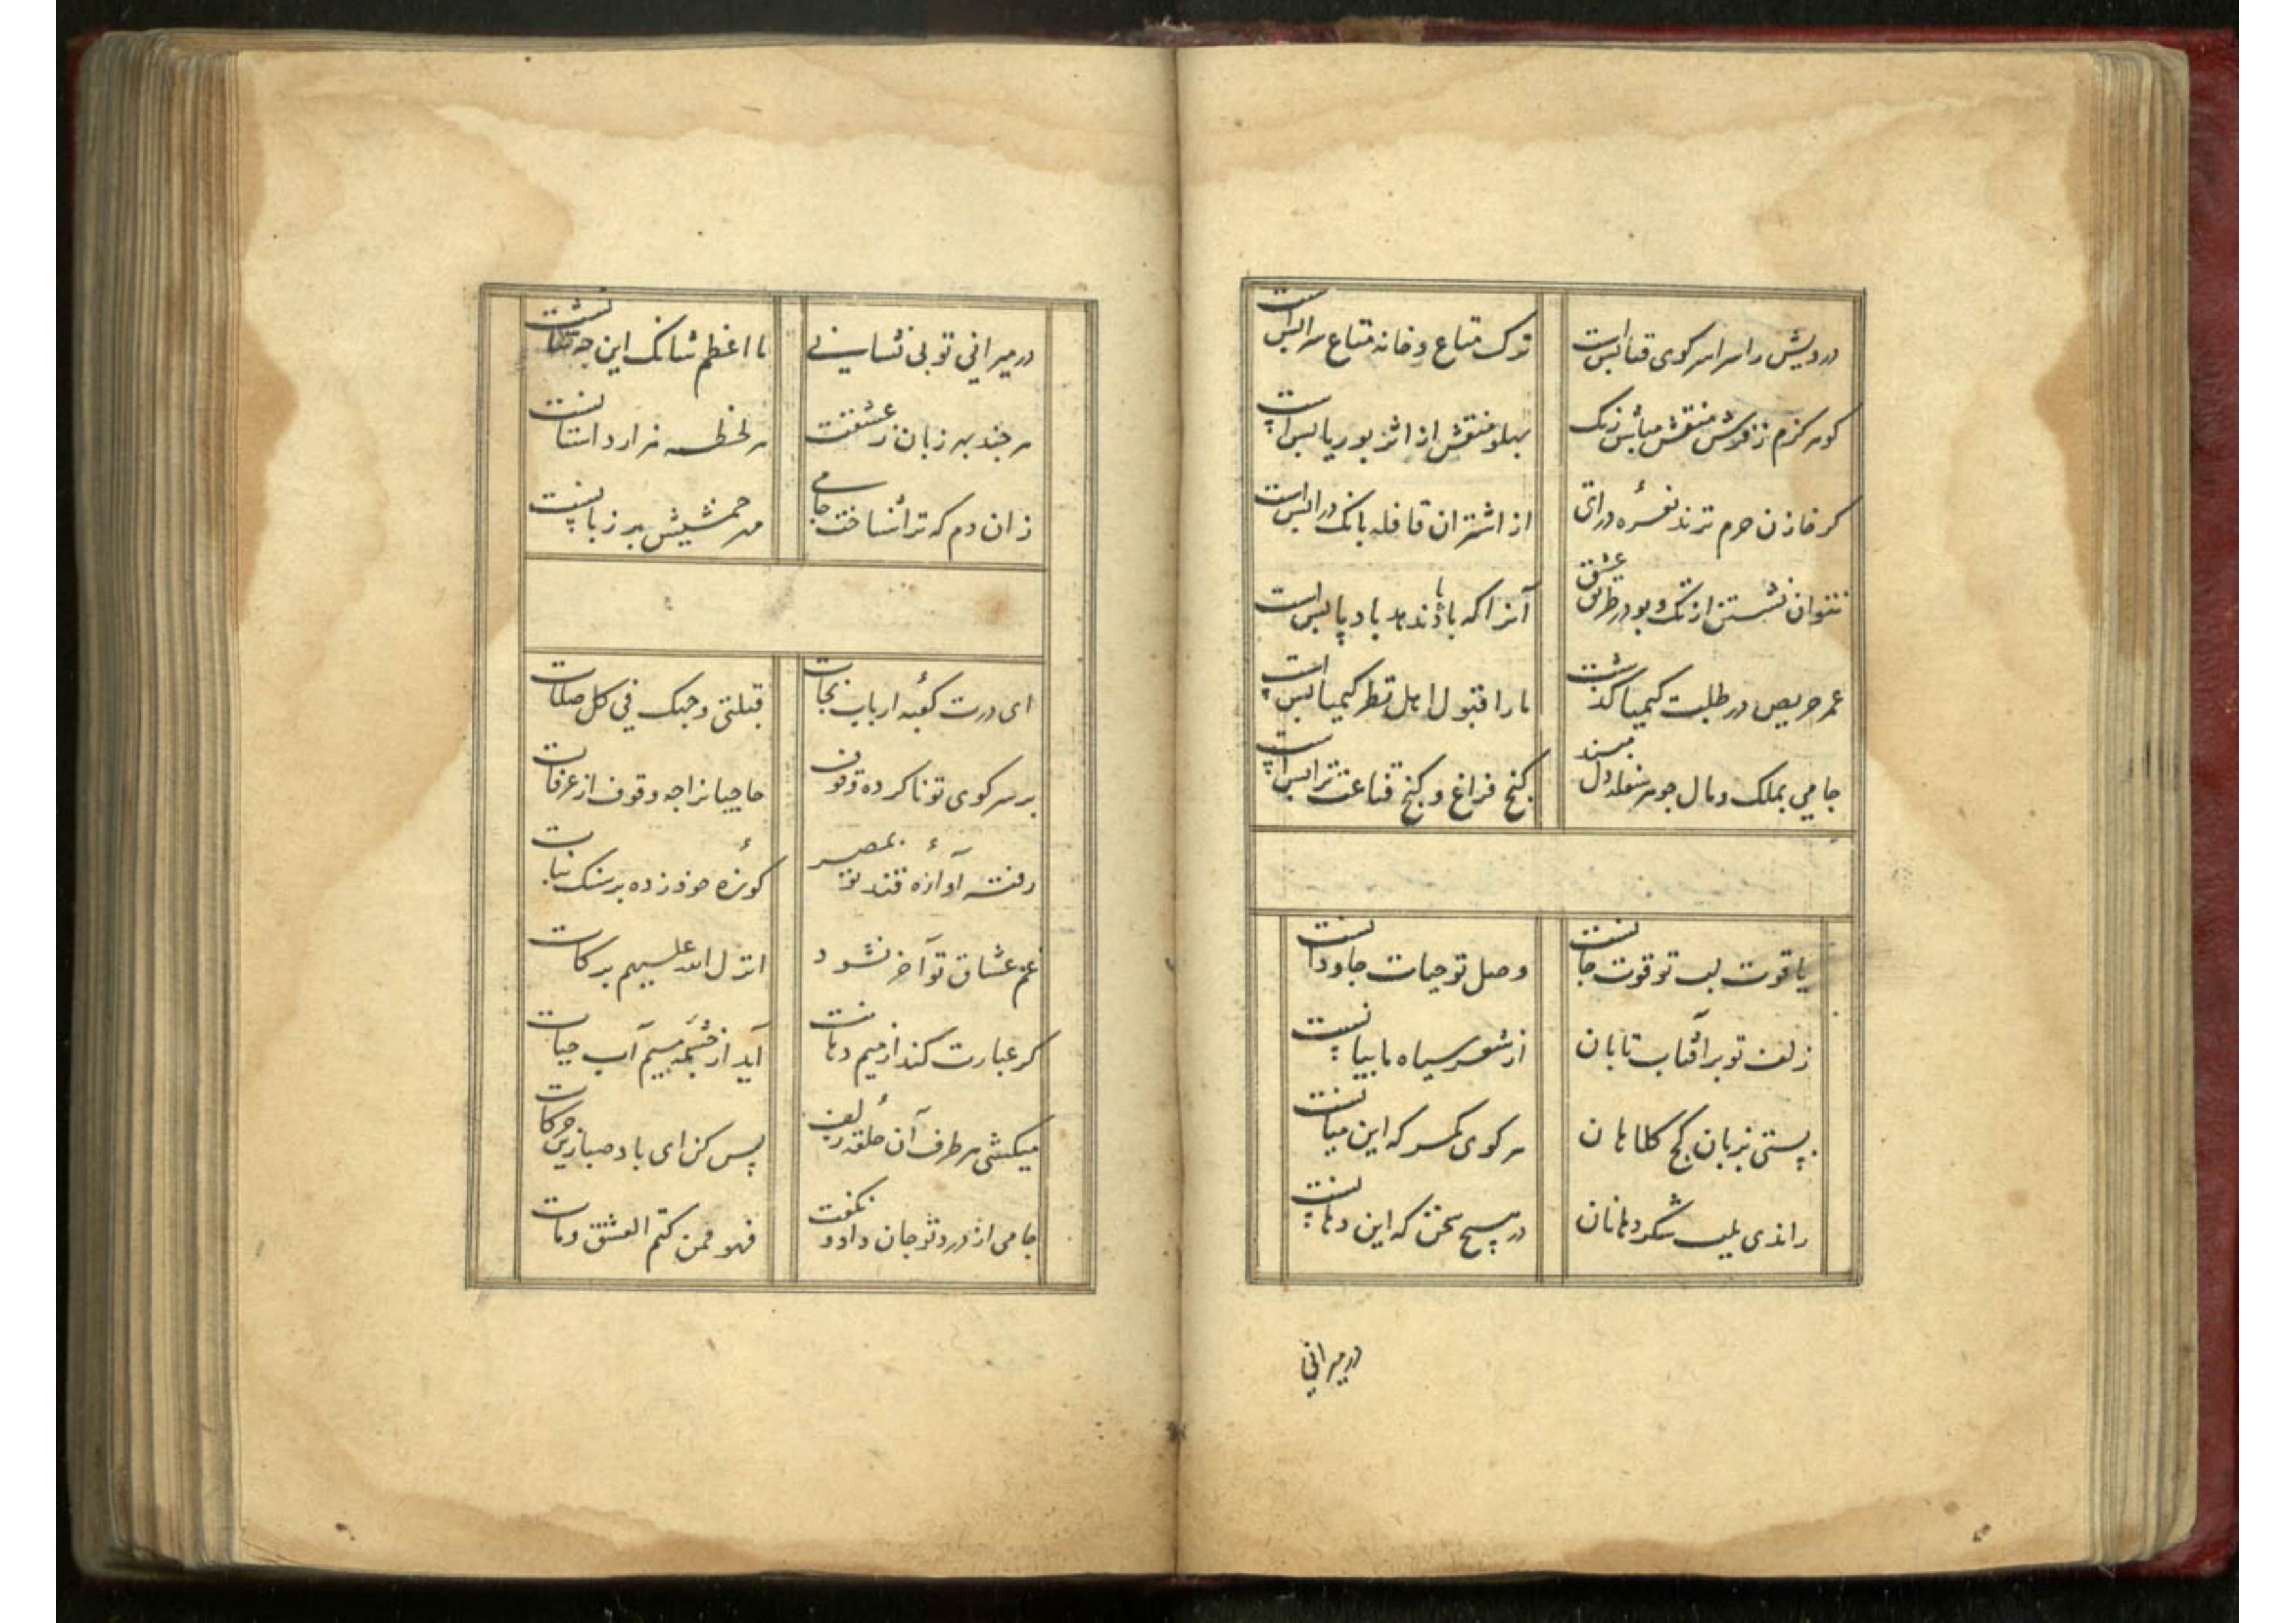 درویش را سراسر کوی فنا بس است
ترک متاع و خانه متاع سرا بس است
کو هرگزم ز فرش منقش مباش رنگ
پهلو منقش از اثر بوریا بس است
گر خازن حرم نزند نغمره درای
از اشتران قافله بانگ درا بس است
نتوان نشستن از تک و پو در طریق عشق
آنرا که باد ندهد باد پا بس است
عمر حریص در طلب کیمیا گذشت
ما را قبول اهل نظر کیمیا بس است
جامی بملک و مال چو هر سفله دل مبند
کنج فراغ و گنج قناعت ترا بس است
یاقوت لب تو قوت جانست
وصل تو حیات جاودانست
زلف تو بر آفتاب تابان
از شعر سیاه سایبانست
بستی بزبان کج کلاهان
هر کوی کمر که این میانست
راندی بلب شکردهانان
در هیچ سخن که این دهانست
در میرانی
در میرانی تو بی نشانی
ما اعظم شانک این چه شانست
هر چند بهر زبان ز عشقت
هر لحظه هزار داستانست
زان دم که ترا شناخت جامی
مهر خمشیش بر زبانست
ای درت کعبه ارباب نجات
قبلتی وجهک فی کل صلات
بر سر کوی تو ناکرده وقوف
حاجیانرا چه وقوف از عرفات
رفته آوازه قند تو بمصر
کوزه خود زده بر سنک نبات
غم عشاق تو آخر نشود
انزل الله علیهم برکات
گر عبارت کند از میم دهانت
آید از چشمه میم آب حیات
میکشی هر طرف آن حلقه زلف
بس کن ای باد صبا زین حرکات
جامی از درد تو جان داد و نگفت
فهو ممن کتم العشق و مات